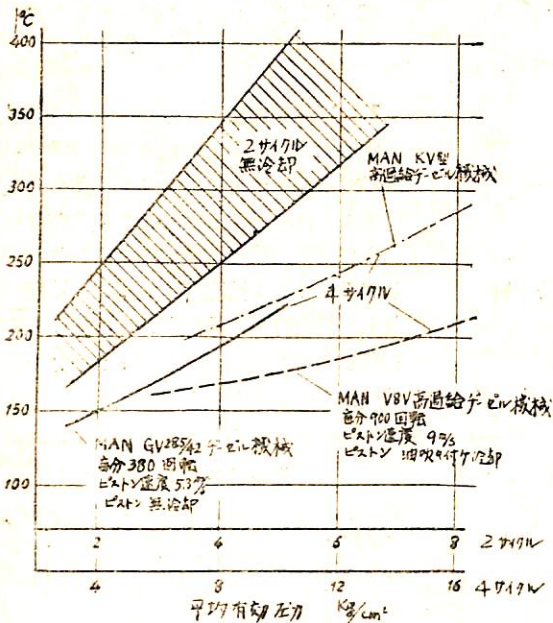 °C
400
350
300
250
200
150
100
2サイクル
無冷却
MAN KV型
高過給デーゼル機械
4サイクル
MAN V8V高過給デーゼル機械
毎分900回転
ピストン速度 9m/s
ピストン 油吹き付ケ冷却
MAN GV285/42デーゼル機械
毎分380回転
ピストン速度 5.3m/s
ピストン 無冷却
2 4 6 8 2サイクル
4 8 12 16 4サイクル
平均有効圧力 Kg/cm²